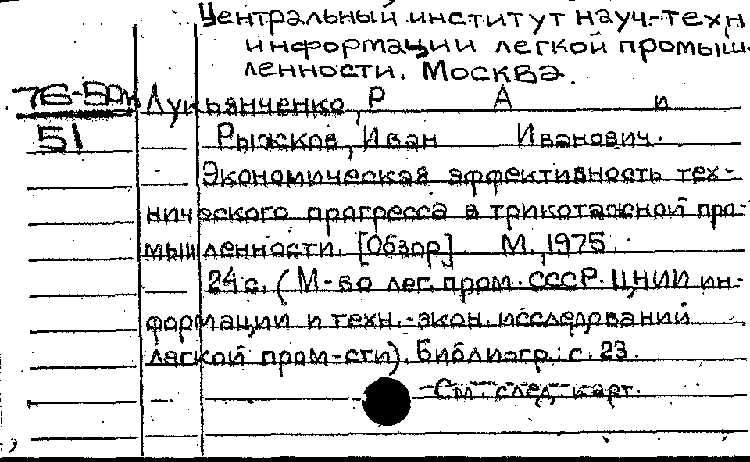 Центральный институт науч.-техн.
информации легкой промыш-
ленности. Москва.
76-50
51
Лукьянченко, Р А и
Рыжков, Иван Иванович.
Экономическая эффективность тех-
нического прогресса в трикотажной про-
мышленности. [Обзор] М., 1975.
24 с. (М-во лег. пром. СССР. ЦНИИ ин-
формации и техн.-экон. исследований
легкой пром-сти). Библиогр.: с. 23.
См. след. карт.